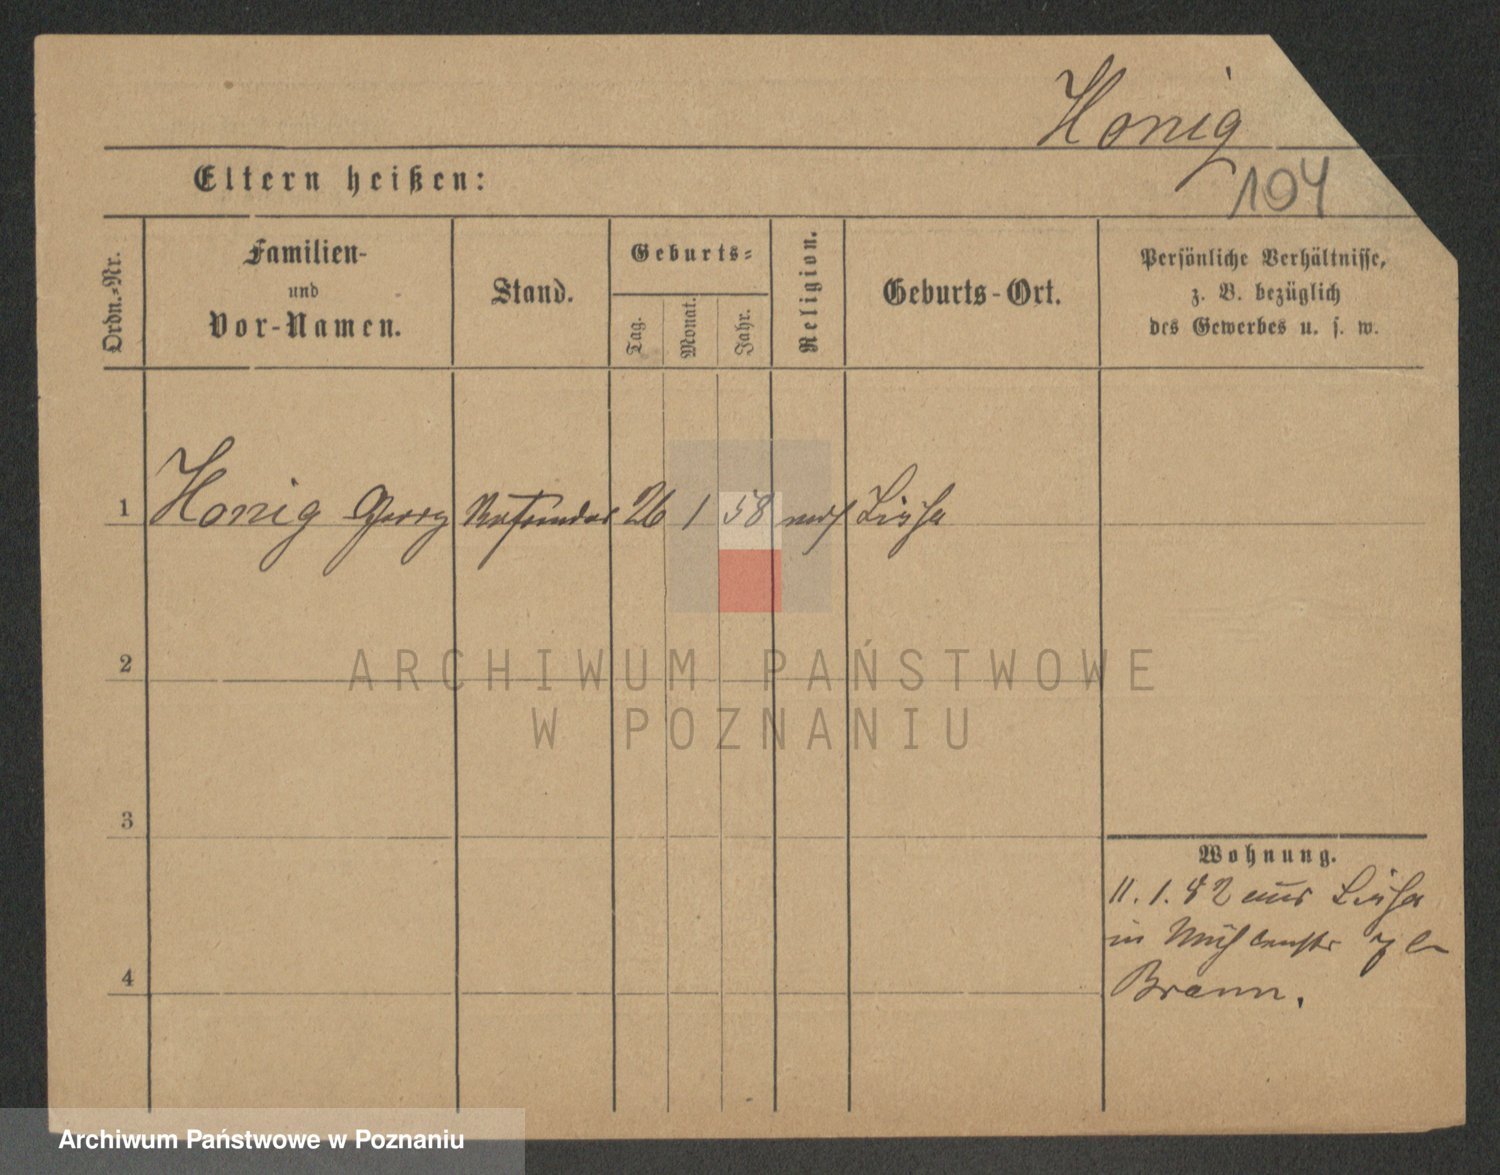 Honig
104
Eltern heißen:
Ordn.-Nr.
Familien-
und
Vor-Namen.
Stand.
Geburts-
Tag.
Monat.
Jahr.
Religion.
Geburts-Ort.
Persönliche Verhältnisse,
z. B. bezüglich
des Gewerbes u. s. w.
1 Honig Georg Referendar 26 1 58 Lissa
2
ARCHIWUM PAŃSTWOWE
W POZNANIU
3
Wohnung.
11. 1. 82 aus Lissa
in Mühlenstr
4
Braun.
Archiwum Państwowe w Poznaniu